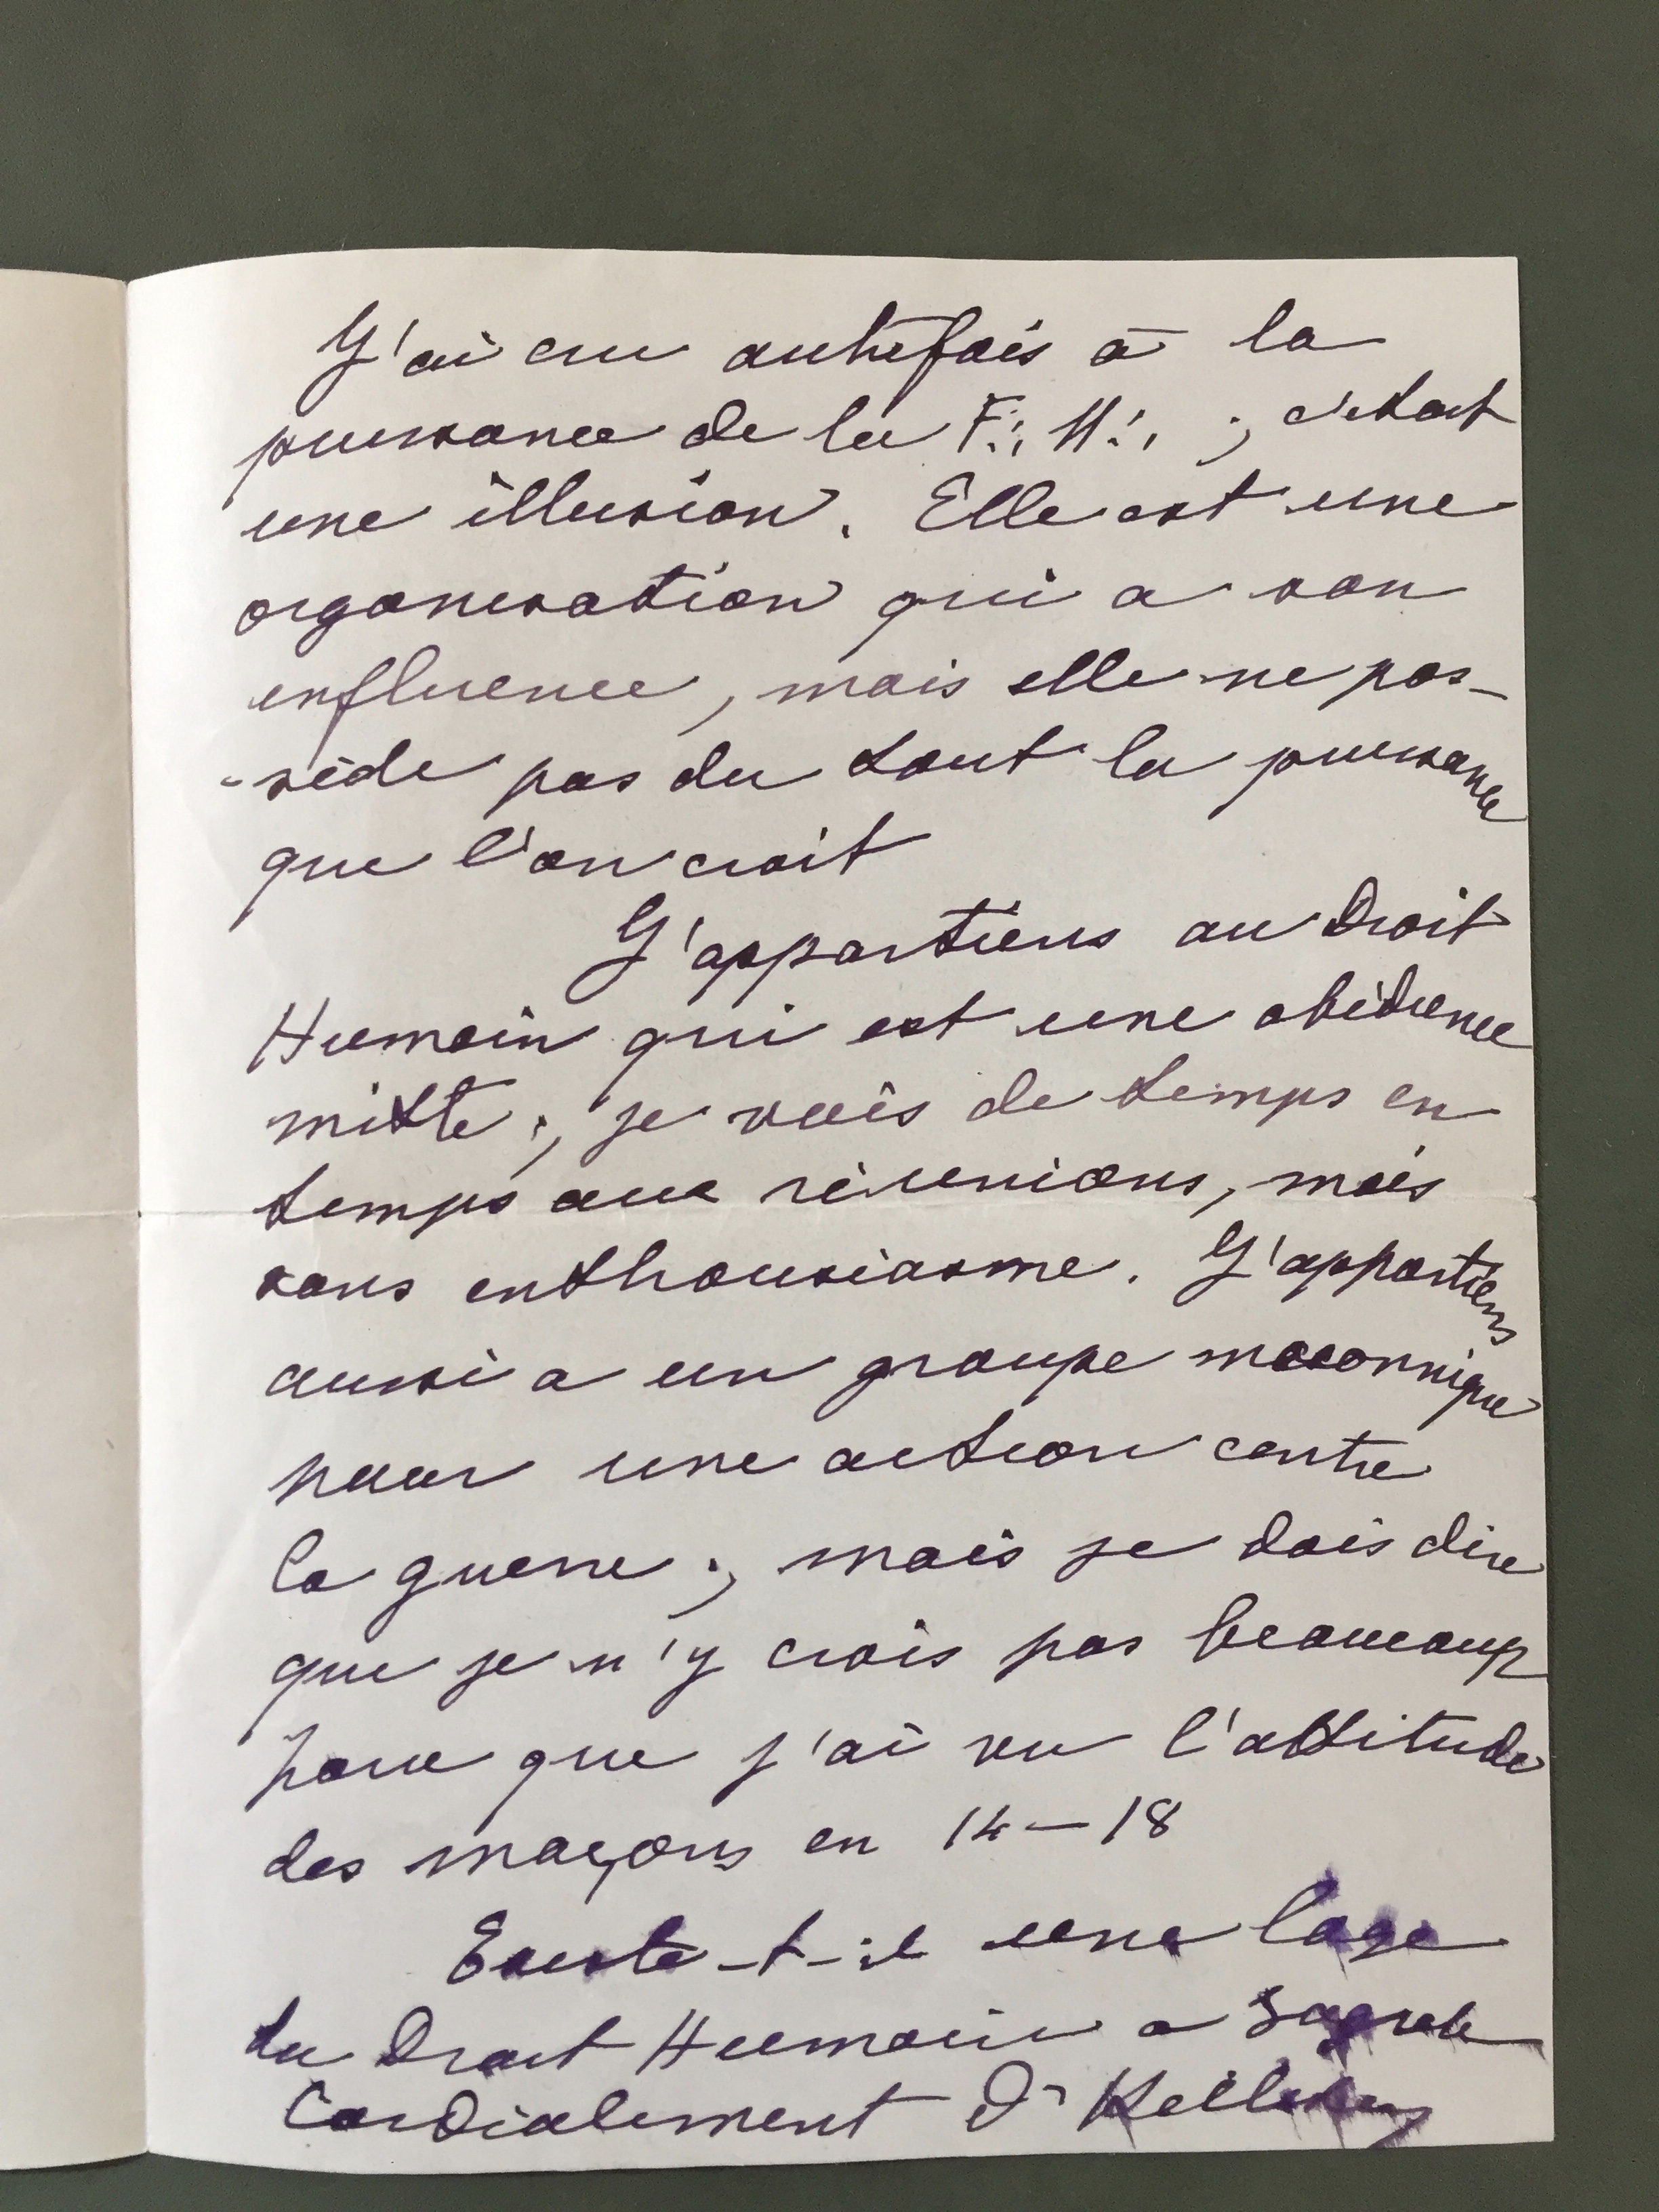 J'ai cru autrefois à la
puissance de la F∴ M∴ ; c'était
une illusion. Elle est une
organisation qui a son
influence, mais elle ne pos-
-sède pas du tout la puissance
que l'on croit
J'appartiens au Droit
Humain qui est une obédience
mixte ; je vais de temps en
temps aux réunions, mais
sans enthousiasme. J'appartiens
aussi a un groupe maçonnique
pour une action contre
la guerre ; mais je dois dire
que je n'y crois pas beaucoup
parce que j'ai vu l'attitude
des maçons en 14-18
Existe-t-il une loge
du Droit Humain a
Cordialement Dr Pelletier